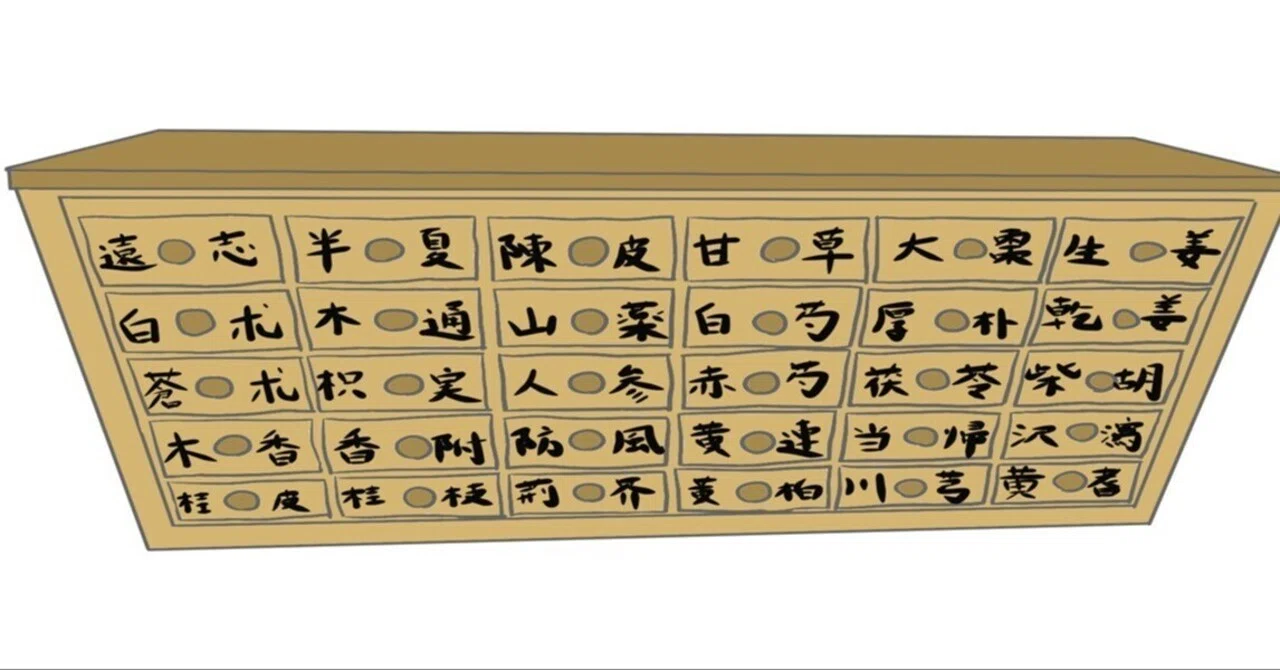 遠志 半夏 陳皮 甘草 大棗 生姜
白朮 木通 山薬 白芍 厚朴 乾姜
蒼朮 枳実 人参 赤芍 茯苓 柴胡
木香 香附 防風 黄連 当帰 沢瀉
桂皮 桂枝 荊芥 黄柏 川芎 黄耆